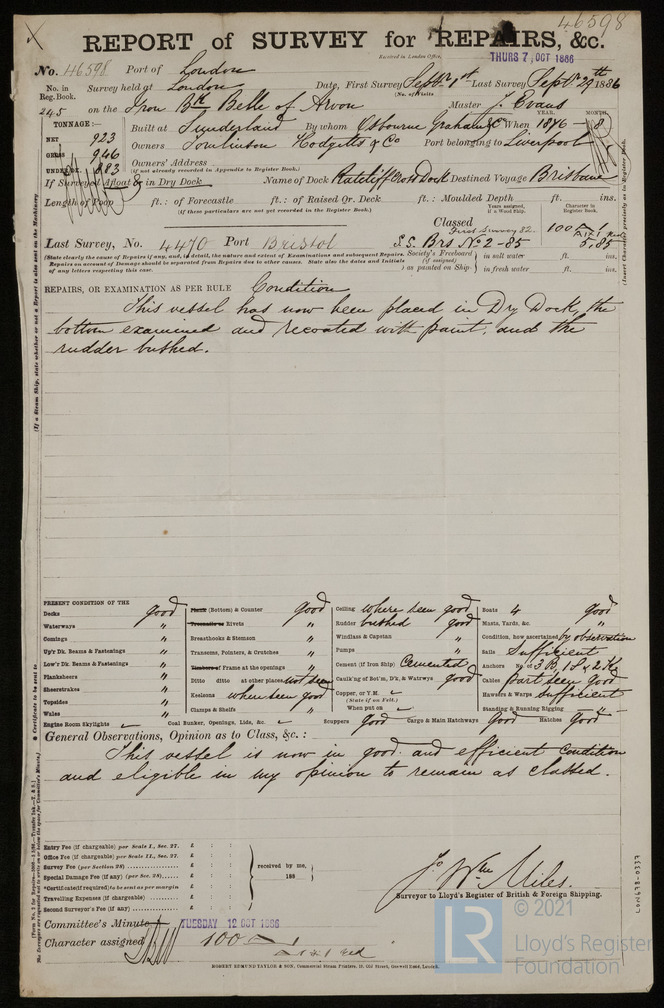 46598
REPORT of SURVEY for REPAIRS, &c.
Received in London Office, THURS 7, OCT 1886
No. 46598 Port of London
No. in Reg. Book. Survey held at London Date, First Survey Septbr 1st Last Survey Septbr 29th 1886
(No. of Visits
245 on the Iron Bk Belle of Arvon Master J. Evans
TONNAGE :— YEAR. MONTH.
NET 923 Built at Sunderland By whom Osbourne Graham & Co When 1876 — 8
GROSS 946 Owners Tomlinson Hodgetts & Co Port belonging to Liverpool
UNDER DK. 883 Owners' Address
(if not already recorded in Appendix to Register Book.)
If Surveyed Afloat & in Dry Dock Name of Dock Ratcliff Cross Dock Destined Voyage Brisbane
Length of Poop ft.: of Forecastle ft.: of Raised Qr. Deck ft.: Moulded Depth ft. ins.
(if these particulars are not yet recorded in the Register Book.)
Years assigned, if a Wood Ship. Character in Register Book.
Classed First Survey 82. 100 A 1
Last Survey, No. 4470 Port Bristol S.S. Brs No 2 - 85 5,85
(State clearly the cause of Repairs if any, and, in detail, the nature and extent of Examinations and subsequent Repairs. Society's Freeboard in salt water ft. ins.
Repairs on account of Damage should be separated from Repairs due to other causes. State also the dates and Initials (if assigned)
of any letters respecting this case. as painted on Ship in fresh water ft. ins.
REPAIRS, OR EXAMINATION AS PER RULE Condition
This vessel has now been placed in Dry Dock, the
bottom examined and recoated with paint, and the
rudder bushed.
PRESENT CONDITION OF THE
Decks good
Waterways "
Comings "
Up'r Dk. Beams & Fastenings "
Low'r Dk. Beams & Fastenings "
Planksheers "
Sheerstrakes "
Topsides "
Wales "
Plank (Bottom) & Counter good
Treenails or Rivets "
Breasthooks & Stemson "
Transoms, Pointers, & Crutches "
Timbers of Frame at the openings "
Ditto ditto at other places not seen
Keelsons where seen good
Clamps & Shelfs "
Ceiling where seen good
Rudder bushed good
Windlass & Capstan "
Pumps "
Cement (if Iron Ship) Cemented
Caulk'ng of Bot'm, D'k, & Watrwys good
Copper, or Y.M.
(State if on Felt.)
When put on
Boats 4 good
Masts, Yards, &c. "
Condition, how ascertained by observation
Sails Sufficient
Anchors No. of 3 B, 1 S & 2 Ks
Cables part seen good
Hawsers & Warps sufficient
Standing & Running Rigging
Engine Room Skylights Coal Bunker, Openings, Lids, &c. Scuppers good Cargo & Main Hatchways good Hatches good
General Observations, Opinion as to Class, &c. :
This vessel is now in good and efficient Condition
and eligible in my opinion to remain as classed.
Entry Fee (if chargeable) per Scale I., Sec. 27. £ : :
Office Fee (if chargeable) per Scale II., Sec. 27. £ : :
Survey Fee (per Section 28) £ : : received by me,
Special Damage Fee (if any) (per Sec. 28) £ : : 188
*Certificate (if required) to be sent as per margin
Travelling Expenses (if chargeable) £ : :
Second Surveyor's Fee (if any) £ : :
Jo Wm Miles.
Surveyor to Lloyd's Register of British & Foreign Shipping.
Committee's Minute TUESDAY 12 OCT 1886
Character assigned 100 A 1
ROBERT EDMUND TAYLOR & SON, Commercial Steam Printers, 19, Old Street, Goswell Road, London.
LON678-0337
© 2021
LR
Lloyd's Register
Foundation